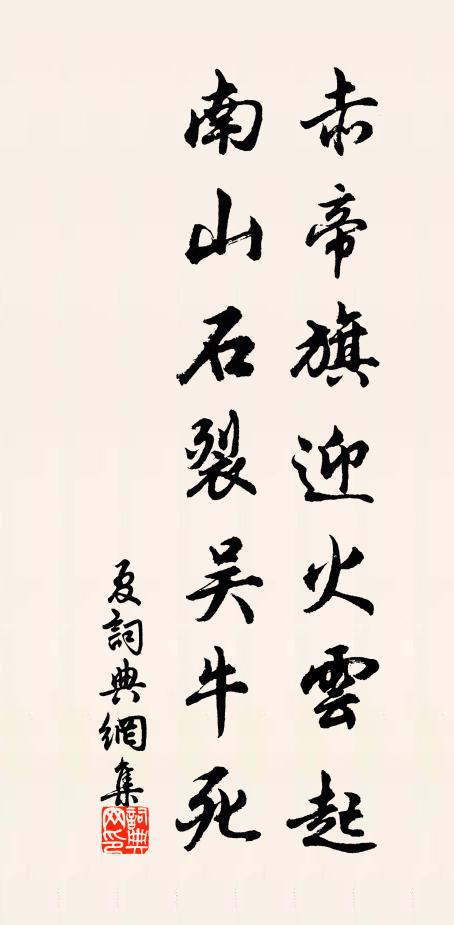 赤帝旗迎火雲起
南山石裂吴牛死
夏詞典網集
詞典網印